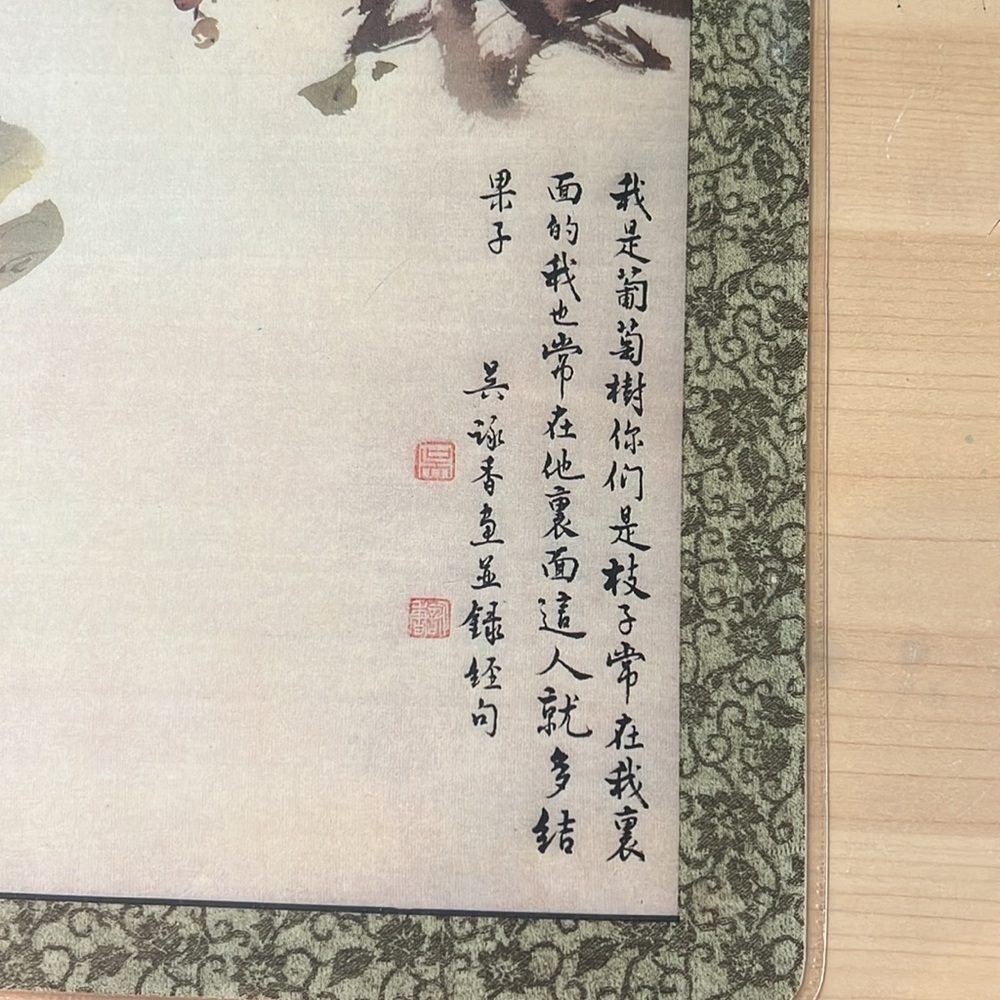 我是葡萄樹你们是枝子常在我裏
面的我也常在他裏面這人就多結
果子
吳詠香畫並録經句
詠香